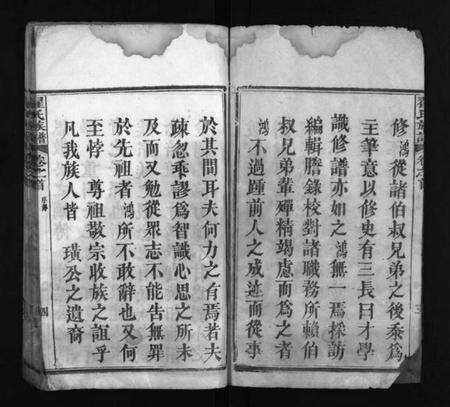 修鴻從諸伯叔兄弟之後秉爲
主筆意以修史有三長曰才學
識修譜亦如之鴻無一焉採訪
編輯謄錄校對諸職務所賴伯
叔兄弟輩殫精竭慮而爲之者
鴻不過踵前人之成迹而從事
於其間耳夫何力之有焉若夫
疎忽乖謬爲智識心思之所未
及而又勉從衆志不能告無罪
於先祖者鴻所不敢辭也又何
至悖尊祖敬宗收族之誼乎
凡我族人皆璜公之遺裔
氏族譜
卷之首
四